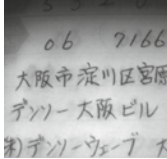 06 7166
大阪市淀川区宮原
デンソー大阪ビル
㈱デンソーウェーブ